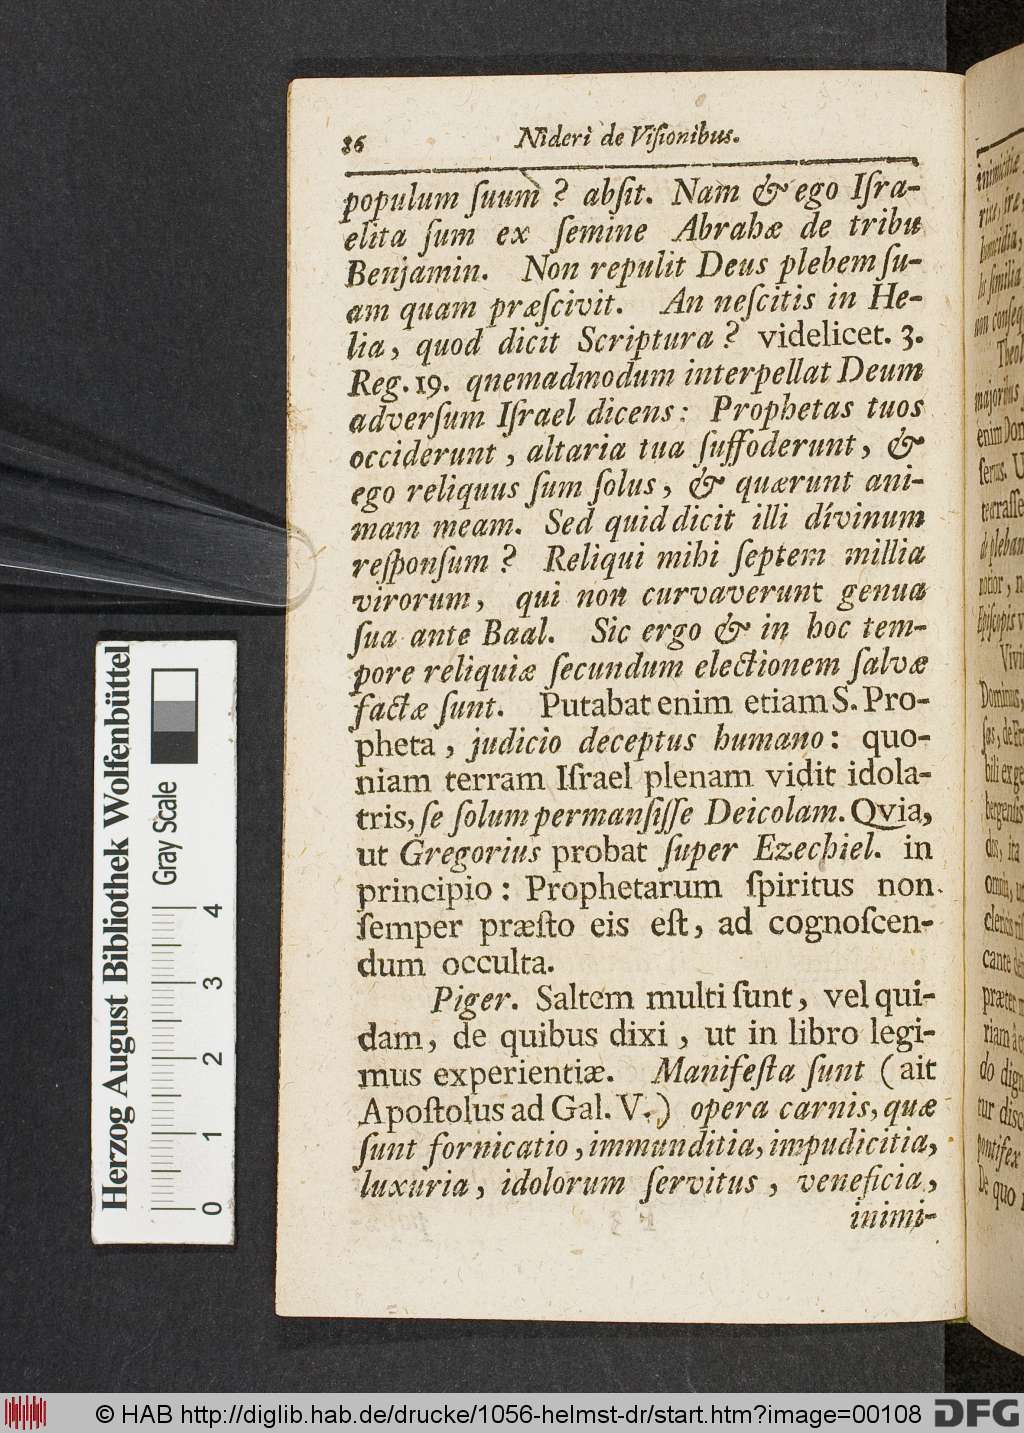 86 Nideri de Viſionibus.
populum ſuum ? abſit. Nam & ego Iſra-
elita ſum ex ſemine Abrahæ de tribu
Benjamin. Non repulit Deus plebem ſu-
am quam præſcivit. An neſcitis in He-
lia, quod dicit Scriptura ? videlicet. 3.
Reg. 19. qnemadmodum interpellat Deum
adverſum Iſrael dicens: Prophetas tuos
occiderunt, altaria tua ſuffoderunt, &
ego reliquus ſum ſolus, & quærunt ani-
mam meam. Sed quid dicit illi divinum
reſponſum ? Reliqui mihi ſeptem millia
virorum, qui non curvaverunt genua
ſua ante Baal. Sic ergo & in hoc tem-
pore reliquiæ ſecundum electionem ſalvæ
factæ ſunt. Putabat enim etiam S. Pro-
pheta, judicio deceptus humano: quo-
niam terram Iſrael plenam vidit idola-
tris, ſe ſolum permanſiſſe Deicolam. Qvia,
ut Gregorius probat ſuper Ezechiel. in
principio: Prophetarum ſpiritus non
ſemper præſto eis eſt, ad cognoſcen-
dum occulta.
Piger. Saltem multi ſunt, vel qui-
dam, de quibus dixi, ut in libro legi-
mus experientiæ. Manifeſta ſunt (ait
Apoſtolus ad Gal. V.) opera carnis, quæ
ſunt fornicatio, immunditia, impudicitia,
luxuria, idolorum ſervitus, veneficia,
inimi-
Herzog August Bibliothek Wolfenbüttel
Gray Scale
0 1 2 3 4
inimicitiæ
homicidia,
ſimilia
majoribus
enim
ſerus.
Epiſcopis
Dominus,
omni,
clericis
cante
præter
riam
do
tur
pontifex
De quo
© HAB http://diglib.hab.de/drucke/1056-helmst-dr/start.htm?image=00108
DFG